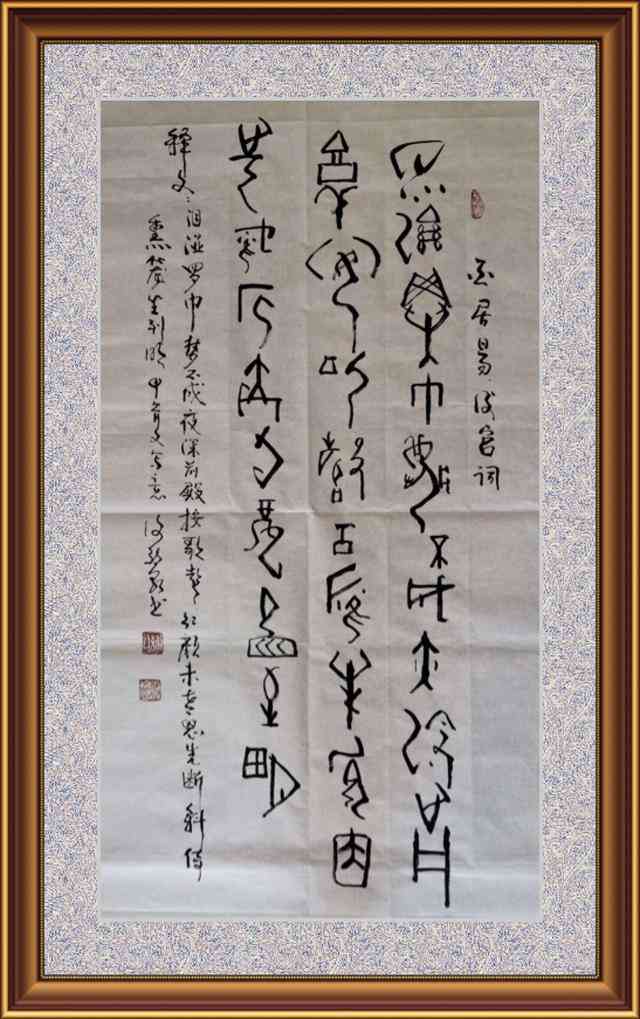 白居易 後宫词
泪湿罗巾梦不成夜深前
殿按歌声红颜未老恩
先断斜倚熏笼坐到明
释文：泪湿罗巾梦不成夜深前殿按歌声红颜未老恩先断斜倚
熏笼坐到明 甲骨文写意 书